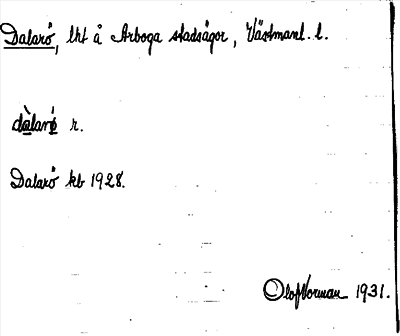 Dalarö, lht å Arboga stadsägor, Västmanl. l.
dàlarö́ r.
Dalarö kb 1928.
Olof Norman 1931.